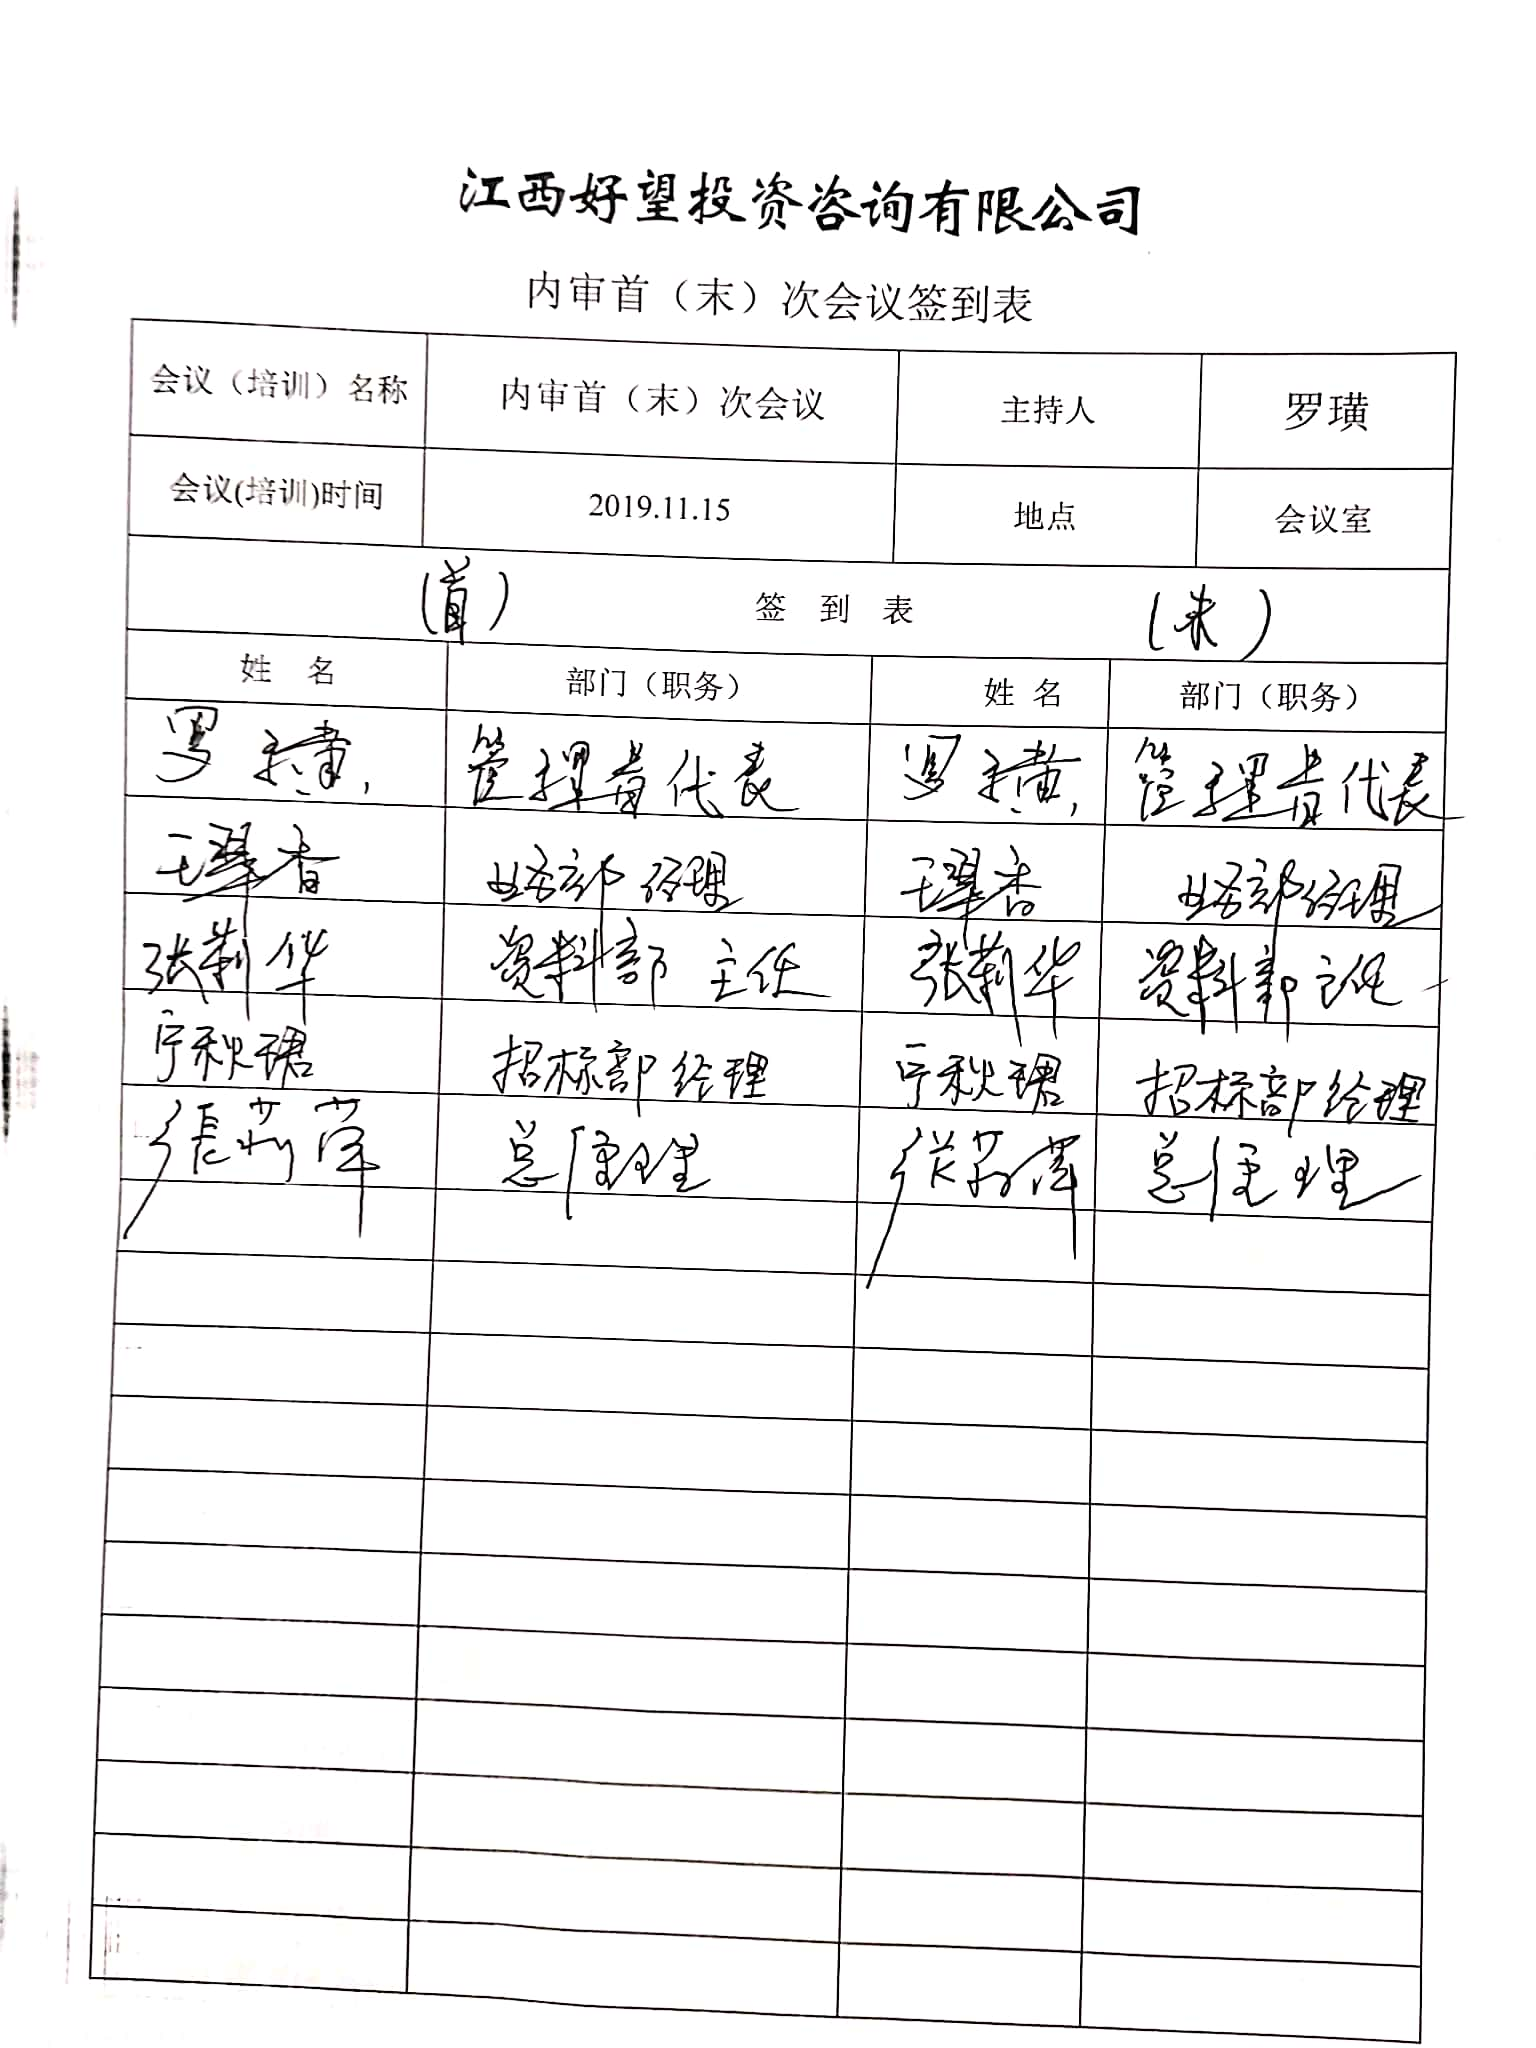 江西好望投资咨询有限公司
内审首（末）次会议签到表
会议（培训）名称 内审首（末）次会议 主持人 罗璜
会议(培训)时间 2019.11.15 地点 会议室
（首） 签 到 表 （末）
姓 名 部门（职务） 姓 名 部门（职务）
罗璜 管理者代表 罗璜 管理者代表
王翠香 业务部经理 王翠香 业务部经理
张莉华 资料部主任 张莉华 资料部主任
宁秋珺 招标部经理 宁秋珺 招标部经理
张莉萍 总经理 张莉萍 总经理